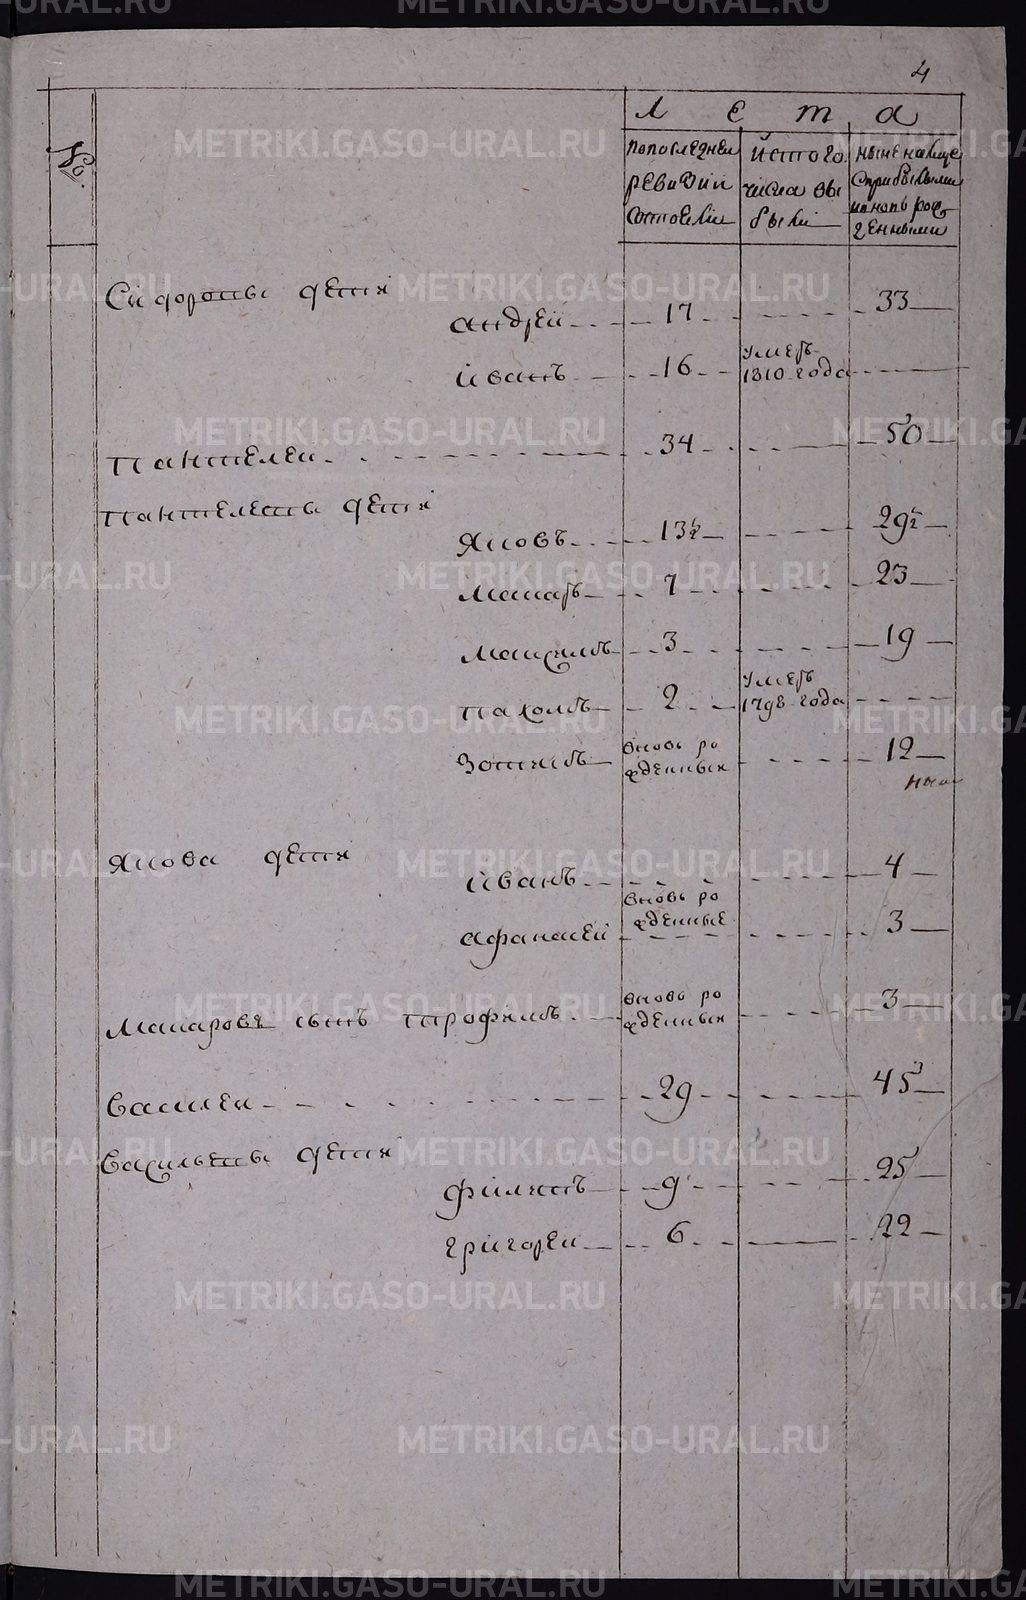 4
№
Л е т а
попоследнеи
ревизии
состояли
Исстого
числа вы
были
ныне налице
сприбылыми
ивновь рож
денными
Сидоровы дети
андрей 17 33
иванъ 16 умеръ
1810 года
пантелеи 34 50
пантелеевы дети
яковъ 13½ 29½
макаръ 7 23
максимъ 3 19
пахомъ 2 умеръ
1798 года
зотикъ вновь ро
жденныи 12
якова дети
иванъ 4
афанасеи вновь ро
жденные 3
макаровъ сынъ трофимъ вновь ро
жденныи 3
василеи 29 45
васильевы дети
филипъ 9 25
григореи 6 22
METRIKI.GASO-URAL.RU